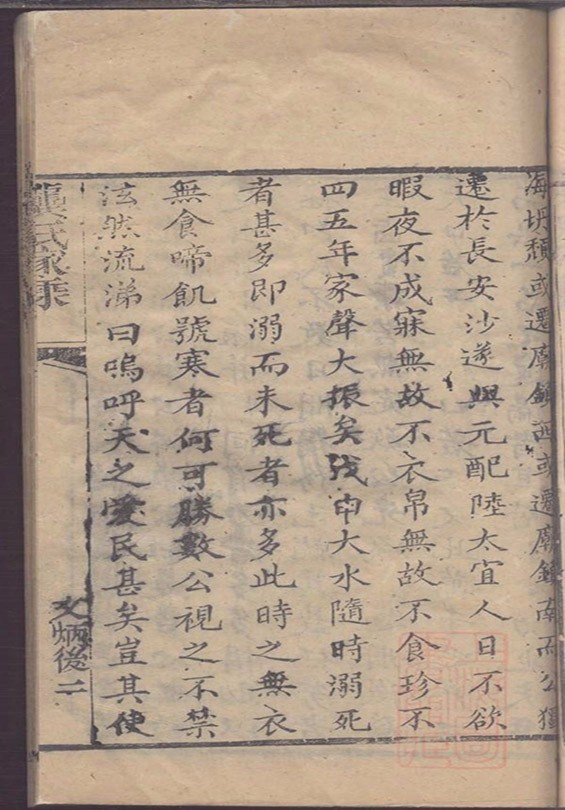 海坍頹或遷廟鎮西或遷廟鎮南而公獨
遷於長安沙遂與元配陸太宜人日不欲
暇夜不成寐無故不衣帛無故不食珍不
四五年家聲大振矣戊申大水隨時溺死
者甚多即溺而未死者亦多此時之無衣
無食啼飢號寒者何可勝數公視之不禁
泫然流涕曰嗚呼天之愛民甚矣豈其使
龔氏家乘
文炳後二